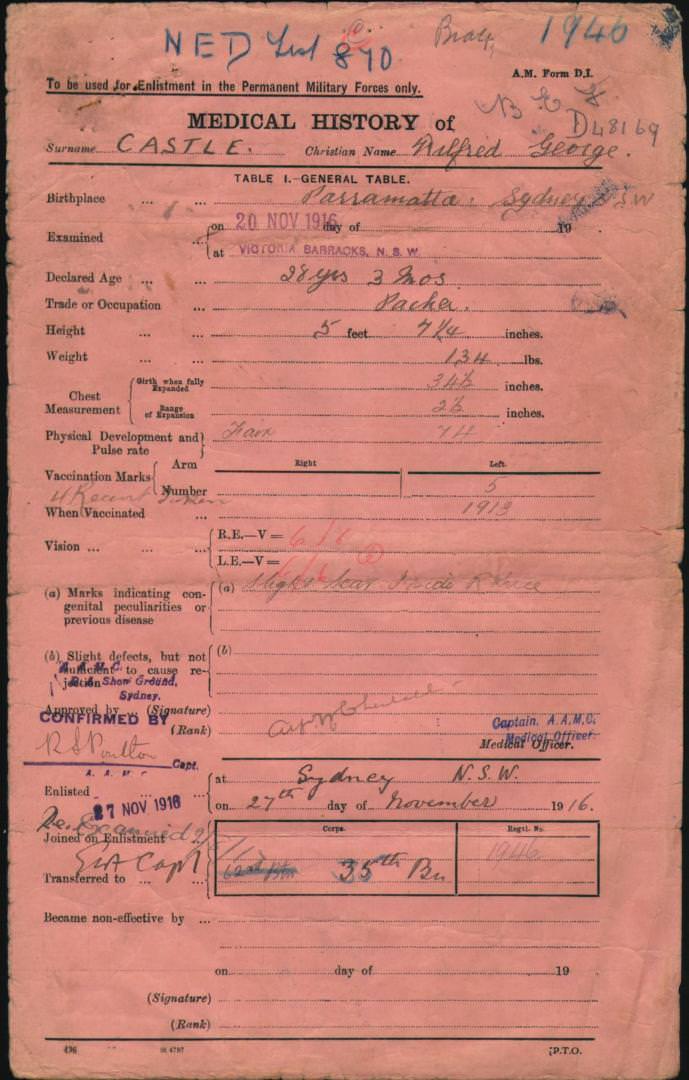 NED List 870
1946
A.M. Form D.I.
To be used for Enlistment in the Permanent Military Forces only.
D48169
MEDICAL HISTORY of
Surname CASTLE. Christian Name Wilfred George.
TABLE I.—GENERAL TABLE.
Birthplace ... ... Parramatta. Sydney NSW
Examined on 20 NOV 1916 day of 19
at VICTORIA BARRACKS, N.S.W.
Declared Age ... ... 28 yrs 3 mos.
Trade or Occupation ... Packer.
Height ... ... 5 feet 7 1/4 inches.
Weight ... ... 134 lbs.
Chest Measurement
Girth when fully Expanded 34½ inches.
Range of Expansion 2½ inches.
Physical Development and Pulse rate Fair 74
Vaccination Marks Arm Right Left.
Number 5
4 Recent
When Vaccinated ... 1913
Vision ... ... ... R.E.—V = 6/6
L.E.—V = 6/6
(a) Marks indicating congenital peculiarities or previous disease (a) Slight scar inside R knee
(b) Slight defects, but not sufficient to cause rejection (b)
A.A.M.C.
R.A. Show Ground,
Sydney.
Approved by (Signature)
CONFIRMED BY
(Rank)
Captain. A.A.M.C.
Medical Officer.
Medical Officer.
R S Poulton Capt.
A.A.M.C.
Enlisted ... ... at Sydney N.S.W.
on 27th day of November 1916.
27 NOV 1916
Re. Examined
Corps. Regtl. No.
Joined on Enlistment 1946
Capt
Transferred to ... ... 62nd Btn 35th Bn
Became non-effective by ...
on day of 19
(Signature)
(Rank)
436
P.T.O.